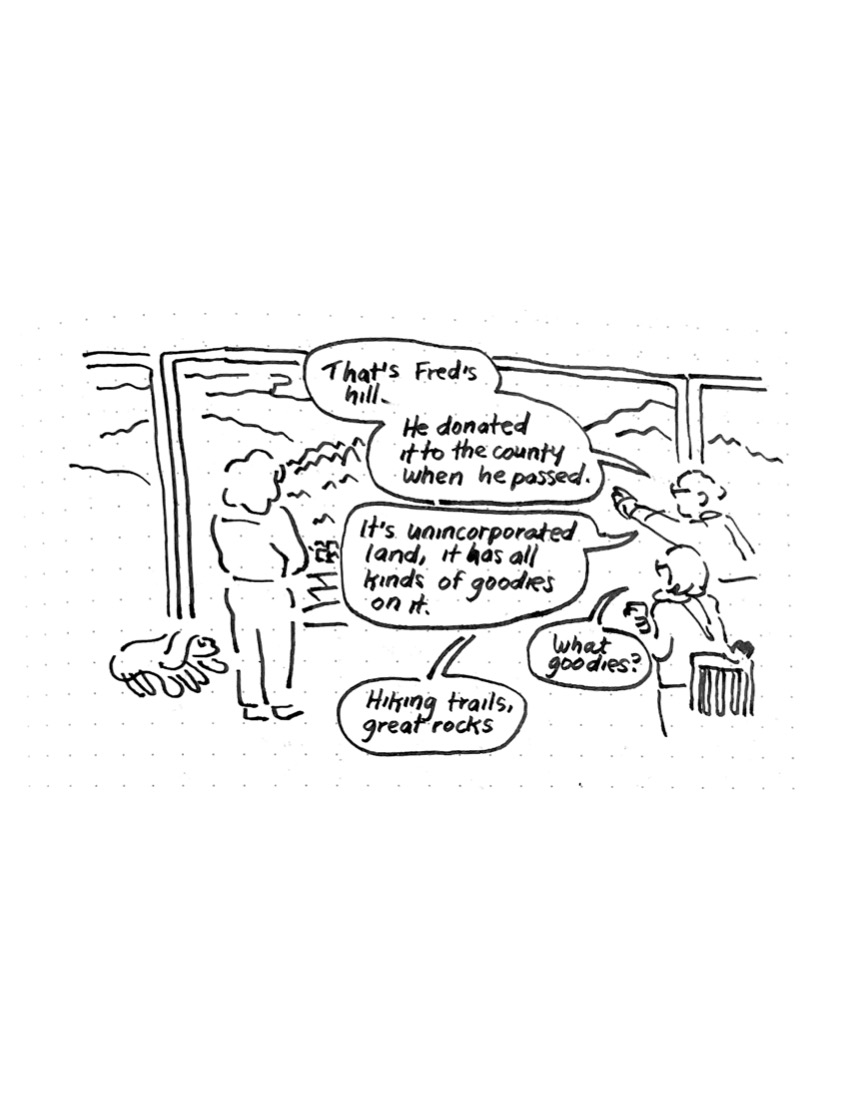 That's Fred's
hill.
He donated
it to the county
when he passed.
It's unincorporated
land, it has all
kinds of goodies
on it.
What
goodies?
Hiking trails,
great rocks